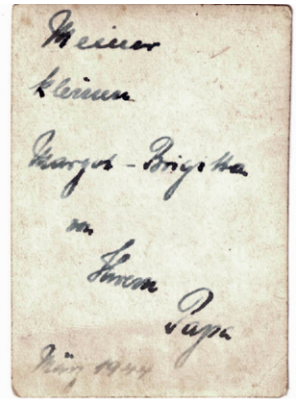 Meiner
kleinen
Margot - Brigitta
von
Ihrem
Papa
März 1944